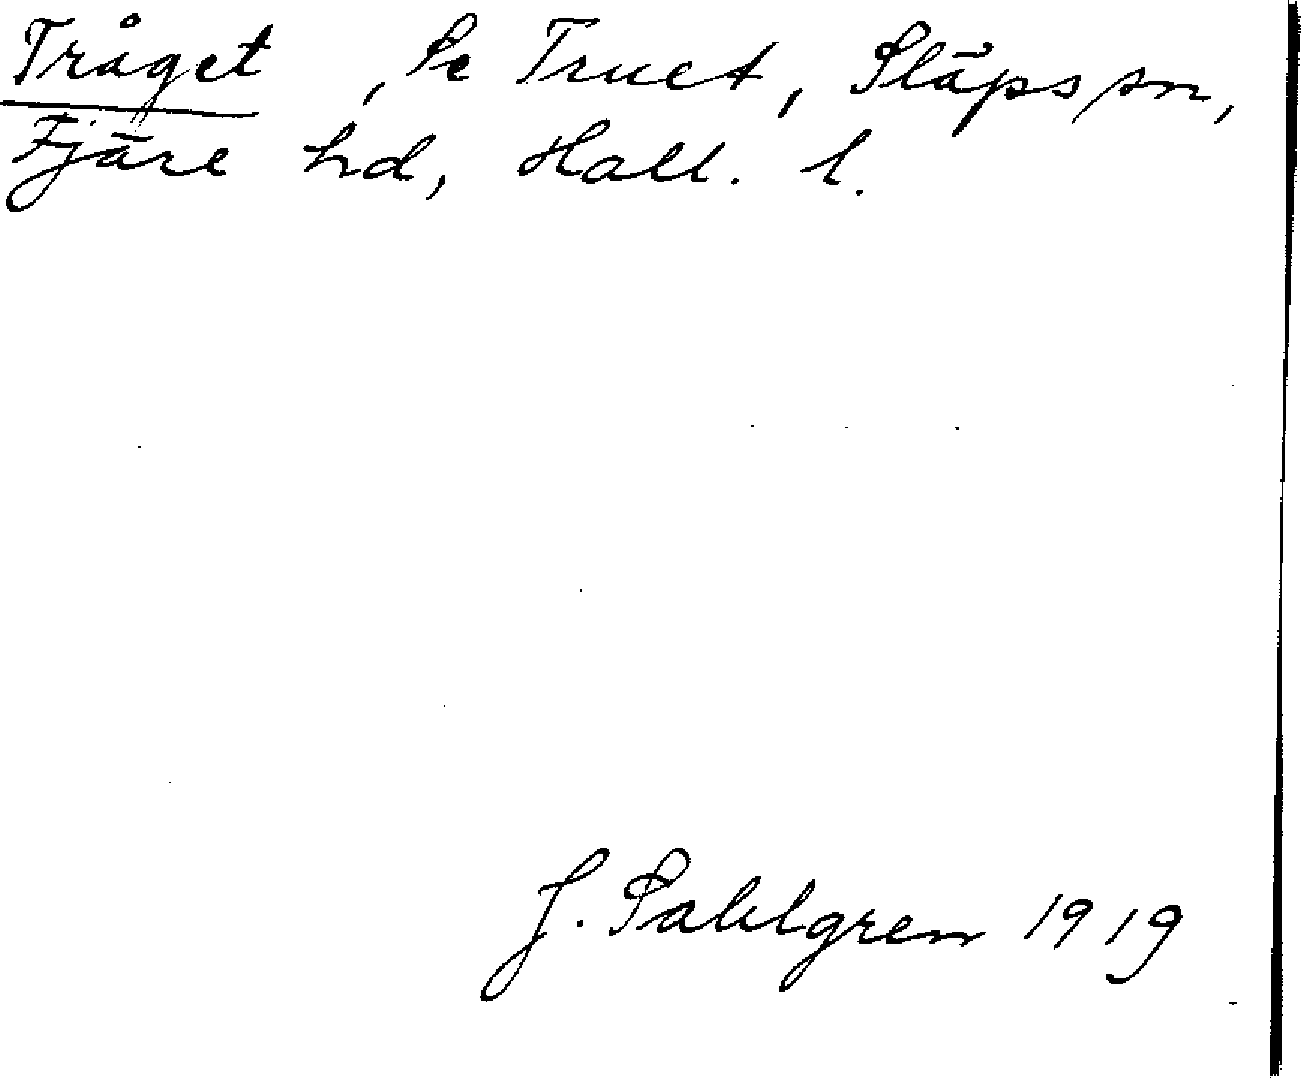 Tråget , Se Truet, Släps sn,
Fjäre hd, Hall. l.
J. Sahlgren 1919